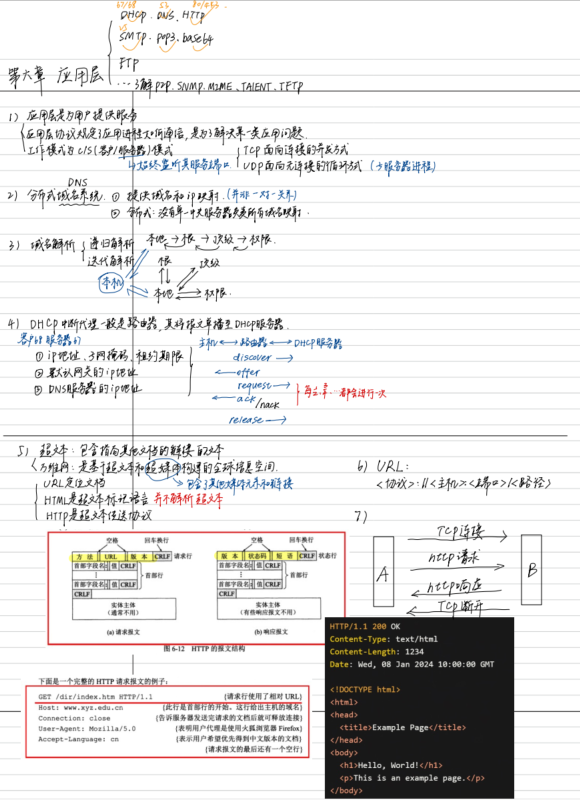 67/68 53 80/443
DHCP. DNS. HTTP
25
SMTP. pop3. base64
第六章 应用层
FTP
… 了解 P2P. SNMP. MIME. TFTP
1) 应用层是为用户提供服务
应用层协议规定了应用进程如何通信, 是为了解决某一类应用问题.
工作模式为C/S(客户/服务器)模式
TCP面向连接的并发方式
始终监听其服务端口
UDP面向无连接的循环方式 (服务器进程)
DNS
2) 分布式域名系统. ① 提供域名和ip映射. (并非一对一关系)
② 分布式: 没有单一中央服务器负责所有域名映射.
3) 域名解析
递归解析 本地 → 根 → 顶级 → 权限.
迭代解析 根 顶级
本机
本地 权限.
4) DHCP中断代理一般是路由器, 其将报文单播至DHCP服务器.
客户68 服务器67
主机 ↔ 路由器 ↔ DHCP服务器
① ip地址、子网掩码、租约期限
discover →
② 默认网关的ip地址
← offer
request →
③ DNS服务器的ip地址
← ack/nack
都会进行一次
release →
5) 超文本: 包含指向其他文档的链接的文本
万维网: 是基于超文本和超媒体构建的全球信息空间.
URL定位文档
包含了其他媒体元素和链接
HTML是超文本标记语言 并不解析超文本
HTTP是超文本传送协议
6) URL:
<协议>://<主机>:<端口>/<路径>
7)
TCP连接
http请求
A B
http响应
TCP断开
空格 回车换行
方 法 URL 版 本 CRLF 请求行
首部字段名 : 值 CRLF
首部字段名 : 值 CRLF
首部行
CRLF
实体主体
(通常不用)
(a) 请求报文
空格 回车换行
版 本 状态码 短 语 CRLF 状态行
首部字段名 : 值 CRLF
首部字段名 : 值 CRLF
首部行
CRLF
实体主体
(有些响应报文不用)
(b) 响应报文
图 6-12 HTTP 的报文结构
下面是一个完整的 HTTP 请求报文的例子:
GET /dir/index.htm HTTP/1.1 {请求行使用了相对 URL}
Host: www.xyz.edu.cn {此行是首部行的开始。这行给出主机的域名}
Connection: close {告诉服务器发送完请求的文档后就可释放连接}
User-Agent: Mozilla/5.0 {表明用户代理是使用火狐浏览器 Firefox}
Accept-Language: cn {表示用户希望优先得到中文版本的文档}
{请求报文的最后还有一个空行}
HTTP/1.1 200 OK
Content-Type: text/html
Content-Length: 1234
Date: Wed, 08 Jan 2024 10:00:00 GMT
<!DOCTYPE html>
<html>
<head>
<title>Example Page</title>
</head>
<body>
<h1>Hello, World!</h1>
<p>This is an example page.</p>
</body>